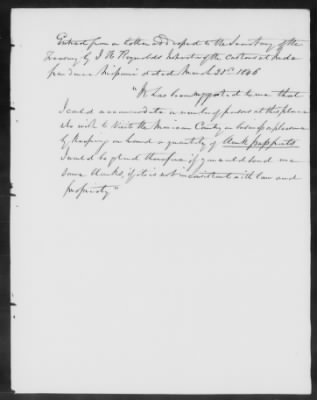 Extract from a letter addressed to the Secretary of the
Treasury by J R Reynolds of the customs at
dated March 21st 1846
"It has been suggested to me that
I could accommodate a number of persons at this place
who wish to visit the Mexican Country on business or pleasure
by keeping on hand a quantity of blank passports
I would be glad therefore if you would send me
some blanks, if it is not inconsistent with law and
propriety"